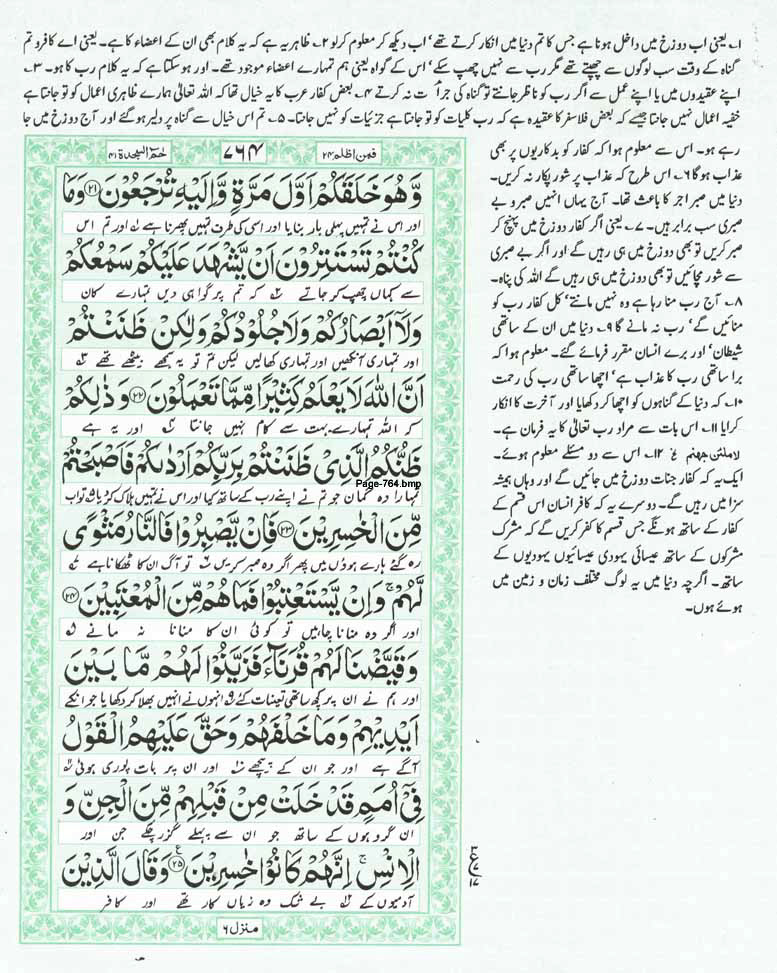 ۱۔ یعنی اب دوزخ میں داخل ہونا ہے جس کا تم دنیا میں انکار کرتے تھے' اب دیکھ کر معلوم کر لو ۲۔ ظاہر یہ ہے کہ یہ کلام بھی ان کے اعضاء کا ہے۔ یعنی اے کافرو تم
گناہ کے وقت سب لوگوں سے چھپتے تھے مگر رب سے نہیں چھپ سکے' اس کے گواہ یعنی ہم تمہارے اعضاء موجود تھے۔ اور ہو سکتا ہے کہ یہ کلام رب کا ہو۔ ۳۔
اپنے عقیدوں میں یا اپنے عمل سے اگر رب کو ناظر جانتے تو گناہ کی جرأت نہ کرتے ۴۔ بعض کفار عرب کا یہ خیال تھا کہ اللہ تعالیٰ ہمارے ظاہری اعمال کو تو جانتا ہے
خفیہ اعمال نہیں جانتا جیسے کہ بعض فلاسفر کا عقیدہ ہے کہ رب کلیات کو تو جانتا ہے جزئیات کو نہیں جانتا۔ ۵۔ تم اس خیال سے گناہ پر دلیر ہو گئے اور آج دوزخ میں جا
رہے ہو۔ اس سے معلوم ہوا کہ کفار کو بدکاریوں پر بھی
عذاب ہو گا ۶۔ اس طرح کہ عذاب پر شور پکار نہ کریں۔
دنیا میں صبر اجر کا باعث تھا۔ آج یہاں انہیں صبر و بے
صبری سب برابر ہیں۔ ۷۔ یعنی اگر کفار دوزخ میں پہنچ کر
صبر کریں تو بھی دوزخ میں ہی رہیں گے اور اگر بے صبری
سے شور مچائیں تو بھی دوزخ میں ہی رہیں گے اللہ کی پناہ۔
۸۔ آج رب منا رہا ہے وہ نہیں مانتے' کل کفار رب کو
منائیں گے' رب نہ مانے گا ۹۔ دنیا میں ان کے ساتھی
شیطان' اور برے انسان مقرر فرمائے گئے۔ معلوم ہوا کہ
برا ساتھی رب کا عذاب ہے' اچھا ساتھی رب کی رحمت
۱۰۔ کہ دنیا کے گناہوں کو اچھا کر دکھایا اور آخرت کا انکار
کرایا ۱۱۔ اس بات سے مراد رب تعالیٰ کا یہ فرمان ہے۔
لاملئن جہنم الخ ۱۲۔ اس سے دو مسئلے معلوم ہوئے۔
ایک یہ کہ کفار جنات دوزخ میں جائیں گے اور وہاں ہمیشہ
سزا میں رہیں گے۔ دوسرے یہ کہ کافر انسان اس قسم کے
کفار کے ساتھ ہونگے جس قسم کا کفر کریں گے کہ مشرک
مشرکوں کے ساتھ عیسائی یہودی عیسائیوں یہودیوں کے
ساتھ۔ اگرچہ دنیا میں یہ لوگ مختلف زمان و زمین میں
ہوئے ہوں۔
فمن اظلم ۲۴ ۷۶۴ حٰم السجدة ۴۱
وَّهُوَ خَلَقَكُمْ اَوَّلَ مَرَّةٍ وَّاِلَيْهِ تُرْجَعُوْنَ ﴿۲۱﴾ وَمَا
اور اس نے تمہیں پہلی بار بنایا اور اسی کی طرف تمہیں پھرنا ہے اور تم اس
كُنْتُمْ تَسْتَتِرُوْنَ اَنْ يَّشْهَدَ عَلَيْكُمْ سَمْعُكُمْ
سے کہاں چھپ کر جاتے کہ تم پر گواہی دیں تمہارے کان
وَلَآ اَبْصَارُكُمْ وَلَا جُلُوْدُكُمْ وَلٰكِنْ ظَنَنْتُمْ
اور تمہاری آنکھیں اور تمہاری کھالیں لیکن تم تو یہ سمجھے بیٹھے تھے
اَنَّ اللّٰهَ لَا يَعْلَمُ كَثِيْرًا مِّمَّا تَعْمَلُوْنَ ﴿۲۲﴾ وَذٰلِكُمْ
کہ اللہ تمہارے بہت سے کام نہیں جانتا اور یہ ہے
ظَنُّكُمُ الَّذِيْ ظَنَنْتُمْ بِرَبِّكُمْ اَرْدٰىكُمْ فَاَصْبَحْتُمْ
تمہارا وہ گمان جو تم نے اپنے رب کے ساتھ کیا اور اس نے تمہیں ہلاک کر دیا ۵ تو اب
Page-764.bmp
مِّنَ الْخٰسِرِيْنَ ﴿۲۳﴾ فَاِنْ يَّصْبِرُوْا فَالنَّارُ مَثْوًى
رہ گئے ہارے ہوؤں میں پھر اگر وہ صبر کریں ۶ تو آگ ان کا ٹھکانا ہے
لَّهُمْ ۚ وَاِنْ يَّسْتَعْتِبُوْا فَمَا هُمْ مِّنَ الْمُعْتَبِيْنَ ﴿۲۴﴾
اور اگر وہ منانا چاہیں تو کوئی ان کا منانا نہ مانے
وَقَيَّضْنَا لَهُمْ قُرَنَآءَ فَزَيَّنُوْا لَهُمْ مَّا بَيْنَ
اور ہم نے ان پر کچھ ساتھی تعینات کئے ۹ انہوں نے انہیں بھلا کر دکھایا جو انکے
اَيْدِيْهِمْ وَمَا خَلْفَهُمْ وَحَقَّ عَلَيْهِمُ الْقَوْلُ
آگے ہے اور جو ان کے پیچھے اور ان پر بات پوری ہوئی
فِيْٓ اُمَمٍ قَدْ خَلَتْ مِنْ قَبْلِهِمْ مِّنَ الْجِنِّ وَ
ان گروہوں کے ساتھ جو ان سے پہلے گزر چکے جن اور
الْاِنْسِ ۚ اِنَّهُمْ كَانُوْا خٰسِرِيْنَ ﴿۲۵﴾ وَقَالَ الَّذِيْنَ
آدمیوں کے بے شک وہ زیاں کار تھے اور کافر
منزل ۶